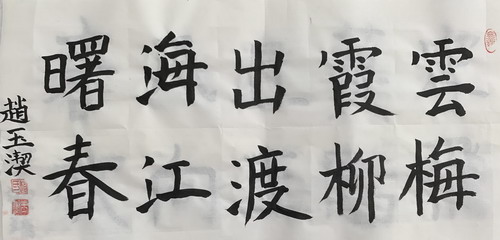 雲霞出海曙
梅柳渡江春
趙玉潔